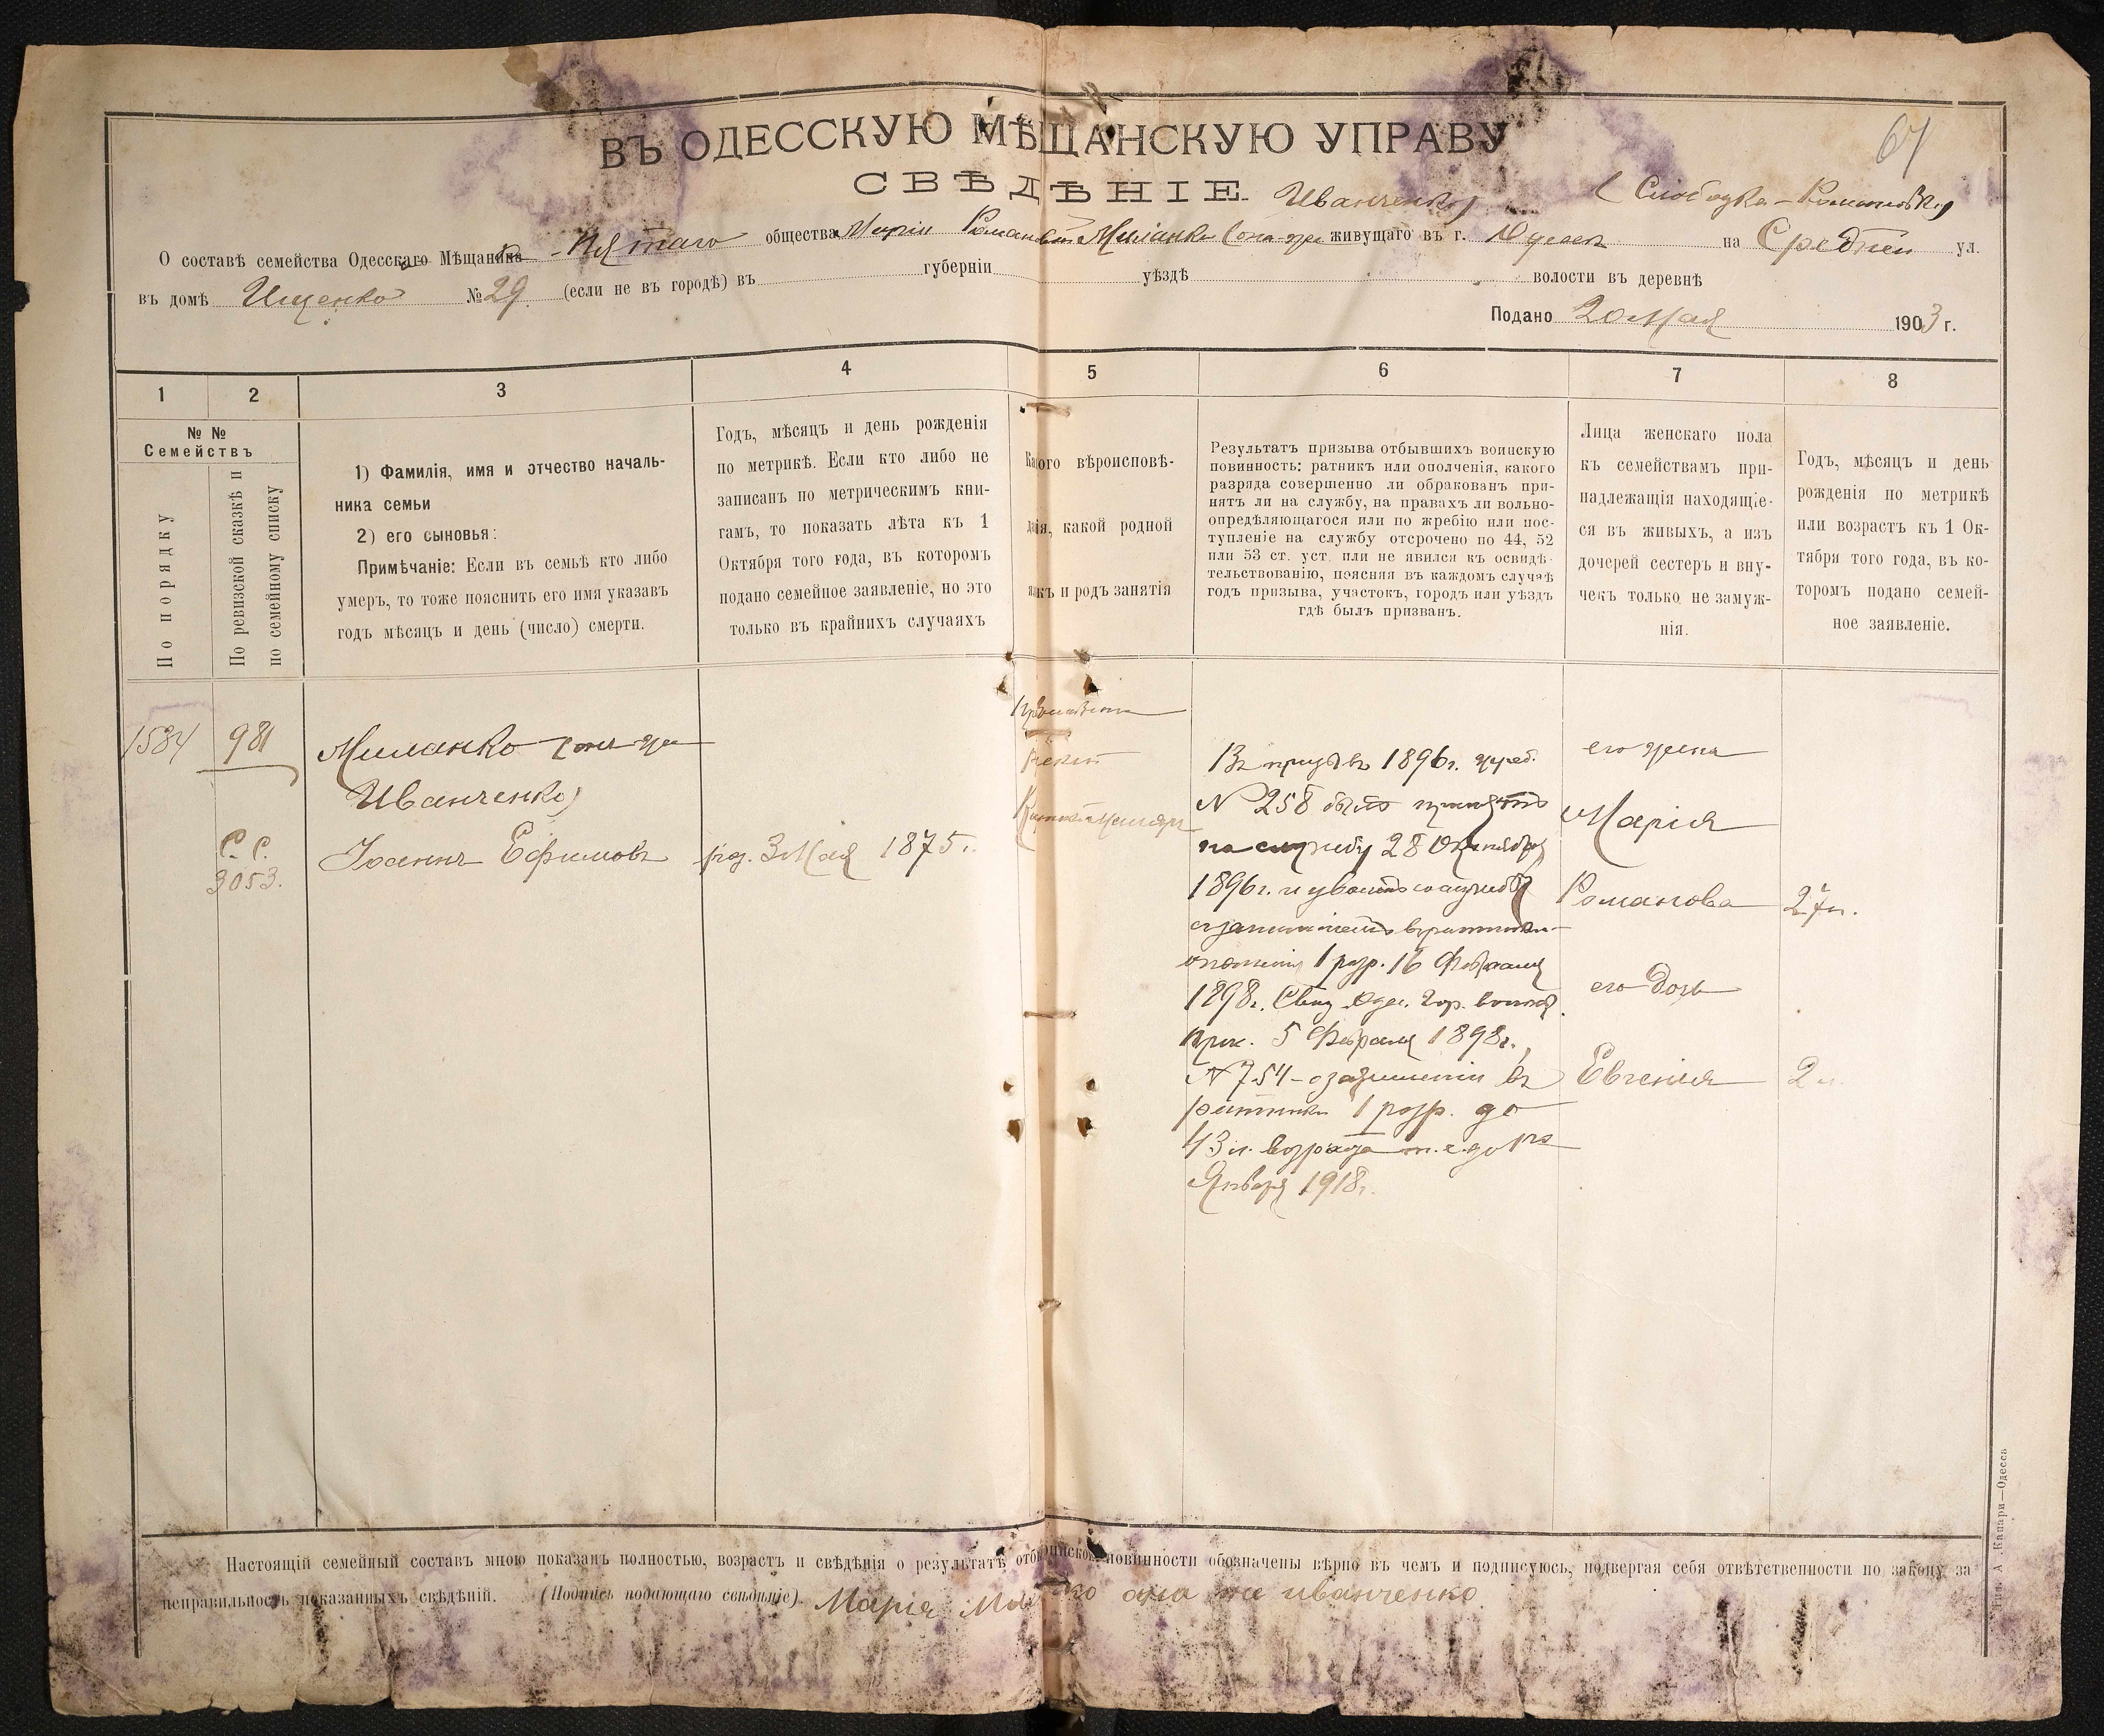 64
ВЪ ОДЕССКУЮ МѢЩАНСКУЮ УПРАВУ
СВѢДѢНІЕ.
Иванченко) (Слободка-Романовка)
О составѣ семейства Одесскаго Мѣщанина Пятаго общества Маріи Романовой Миланко (она-же живущаго въ г. Одессе на Средней ул.
въ домѣ Ищенко № 29 (если не въ городѣ) въ губерніи уѣздѣ волости въ деревнѣ
Подано 20 Мая 1903 г.
1 2 3 4 5 6 7 8
№ №
Семействъ
По порядку
По ревизской сказкѣ и
по семейному списку
1) Фамилія, имя и отчество началь-
ника семьи
2) его сыновья:
Примѣчаніе: Если въ семьѣ кто либо
умеръ, то тоже пояснить его имя указавъ
годъ мѣсяцъ и день (число) смерти.
Годъ, мѣсяцъ и день рожденія
по метрикѣ. Если кто либо не
записанъ по метрическимъ кни-
гамъ, то показать лѣта къ 1
Октября того года, въ которомъ
подано семейное заявленіе, но это
только въ крайнихъ случаяхъ
Какого вѣроисповѣ-
данія, какой родной
языкъ и родъ занятія
Результатъ призыва отбывшихъ воинскую
повинность: ратникъ или ополченія, какого
разряда совершенно ли обракованъ при-
нятъ ли на службу, на правахъ ли вольно-
опредѣляющагося или по жребію или пос-
тупленіе на службу отсрочено по 44, 52
или 53 ст. уст. или не явился къ освидѣ-
тельствованію, поясняя въ каждомъ случаѣ
годъ призыва, участокъ, городъ или уѣздъ
гдѣ былъ призванъ.
Лица женскаго пола
къ семействамъ при-
надлежащія находящіе-
ся въ живыхъ, а изъ
дочерей сестеръ и вну-
чекъ только не замуж-
нія.
Годъ, мѣсяцъ и день
рожденія по метрикѣ
или возрастъ къ 1 Ок-
тября того года, въ ко-
торомъ подано семей-
ное заявленіе.
1584 981
Миланко (она же
Иванченко)
С. С.
3053.
Іоаннъ Ефимовъ
род. 3 Мая 1875 г.
Въ призывъ 1896 г. жреб.
№ 258 былъ принятъ
на службу 28 Октября
1896 г. и уволенъ со службы
1 разр. 16 Февраля
1898 г. Свид. Одес. Гор. воинск.
прис. 5 Февраля 1898 г.,
№ 754 - о зачисленіи въ
ратники 1 разр. до
43 л. возраста т. е. до 1го
Января 1918 г.
его жена
Марія
Романова 27 л.
его дочь
Евгенія 2 л.
Настоящій семейный составъ мною показанъ полностью, возрастъ и свѣдѣнія о результатѣ отб воинской повинности обозначены вѣрно въ чемъ и подписуюсь, подвергая себя отвѣтственности по закону за
неправильность показанныхъ свѣдѣній. (Подпись подающаго свѣдѣніе). Марія Миланко она же иванченко.
Тип. А Капари—Одесса